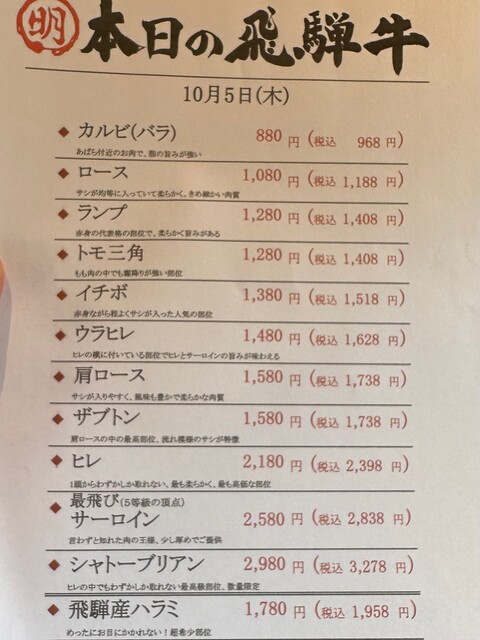 明 本日の飛騨牛
10月5日(木)
◆ カルビ(バラ) 880 円 (税込 968 円)
あばら付近のお肉で、脂の旨みが強い
◆ ロース 1,080 円 (税込 1,188 円)
サシが均等に入っていて柔らかく、きめ細かい肉質
◆ ランプ 1,280 円 (税込 1,408 円)
赤身の代表格の部位で、柔らかく旨みがある
◆ トモ三角 1,280 円 (税込 1,408 円)
もも肉の中でも霜降りが強い部位
◆ イチボ 1,380 円 (税込 1,518 円)
赤身ながら程よくサシが入った人気の部位
◆ ウラヒレ 1,480 円 (税込 1,628 円)
ヒレの横に付いている部位でヒレとサーロインの旨みが味わえる
◆ 肩ロース 1,580 円 (税込 1,738 円)
サシが入りやすく、風味も豊かで柔らかな肉質
◆ ザブトン 1,580 円 (税込 1,738 円)
肩ロースの中の最高部位、流れ模様のサシが特徴
◆ ヒレ 2,180 円 (税込 2,398 円)
1頭からわずかしか取れない、最も柔らかく、最も高価な部位
◆ 最飛び(5等級の頂点)
サーロイン 2,580 円 (税込 2,838 円)
言わずと知れた肉の王様、少し厚めでご提供
◆ シャトーブリアン 2,980 円 (税込 3,278 円)
ヒレの中でもわずかしか取れない最高級部位、数量限定
◆ 飛騨産ハラミ 1,780 円 (税込 1,958 円)
めったにお目にかかれない！超希少部位